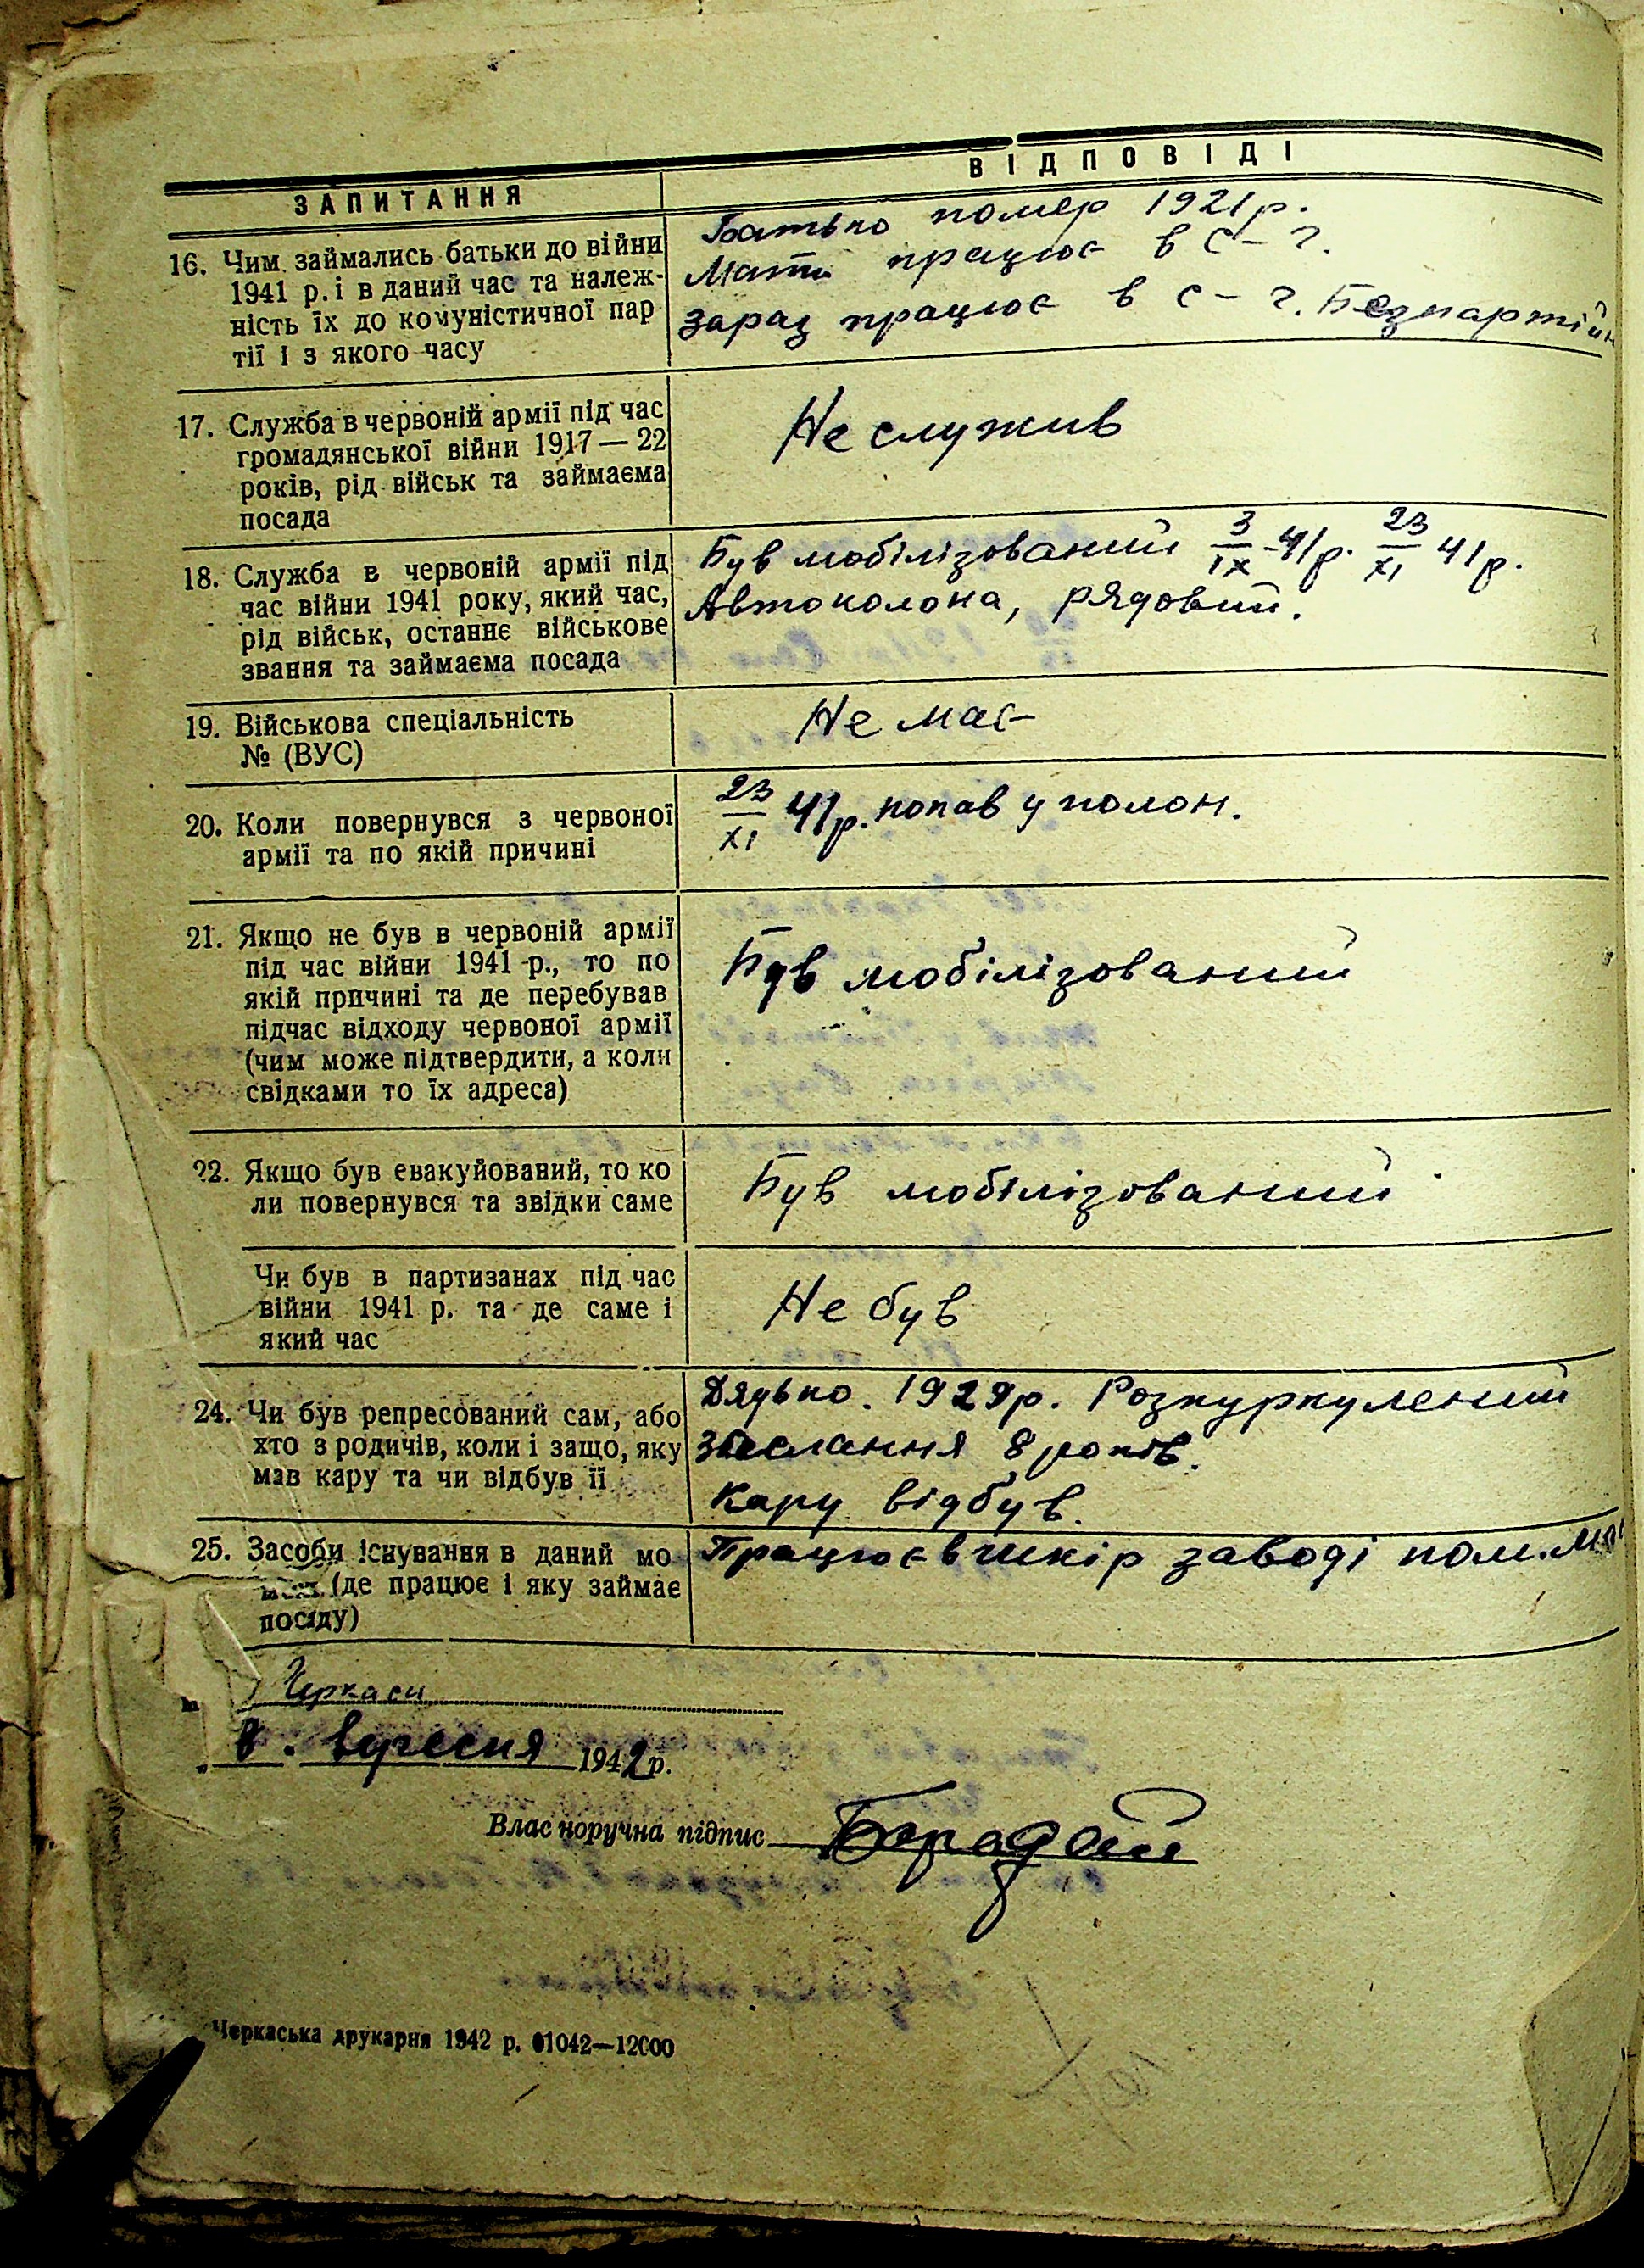 ЗАПИТАННЯ
ВІДПОВІДІ
16. Чим займались батьки до війни
1941 р. і в даний час та належ-
ність їх до комуністичної пар
тії і з якого часу
Батько помер 1921 р.
Мати працює в с-г.
Зараз працює в с-г. Безпартійн
17. Служба в червоній армії під час
громадянської війни 1917—22
років, рід військ та займаєма
посада
Не служив
18. Служба в червоній армії під
час війни 1941 року, який час,
рід військ, останнє військове
звання та займаєма посада
Був мобілізований 3/IX-41р. 23/XI 41р.
Автоколона, рядовий.
19. Військова спеціальність
№ (ВУС)
Не має
20. Коли повернувся з червоної
армії та по якій причині
23/XI 41р. попав у полон.
21. Якщо не був в червоній армії
під час війни 1941 р., то по
якій причині та де перебував
підчас відходу червоної армії
(чим може підтвердити, а коли
свідками то їх адреса)
Був мобілізований
22. Якщо був евакуйований, то ко
ли повернувся та звідки саме
Був мобілізований
Чи був в партизанах під час
війни 1941 р. та де саме і
який час
Не був
24. Чи був репресований сам, або
хто з родичів, коли і защо, яку
мав кару та чи відбув її
Дядько. 1929р. Розкуркулений
Збаслання 8 років.
Кару відбув.
25. Засоби існування в даний мо
(де працює і яку займає
посаду)
Працює в шкір заводі пом.ма
Черкаси
„ 8. вересня 1942 р.
Власноручна підпис Барадай
Черкаська друкарня 1942 р. 01042—12000